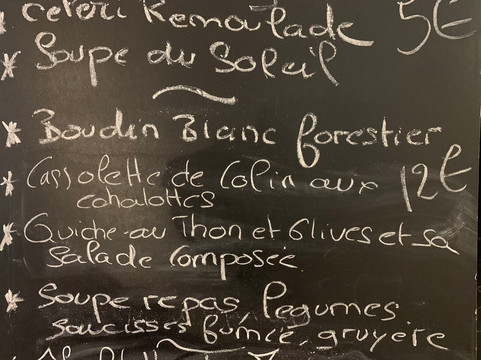 celeri Remoulade 5€
* Soupe du Soleil
* Boudin Blanc forestier
* Cassolette de Colin aux 12€
echalottes
* Quiche au Thon et Olives et sa
Salade Composée
* Soupe repas, Legumes,
saucisses fumée, gruyère